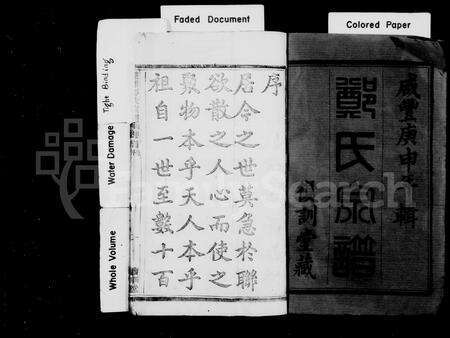 Faded Document
Colored Paper
Tight Binding
Water Damage
Whole Volume
咸豐庚申
鄭氏族譜
訓堂藏
序
居今之世莫急於聯
欲散之人心而使之
聚物本乎天人本乎
祖自一世至數十百
Search